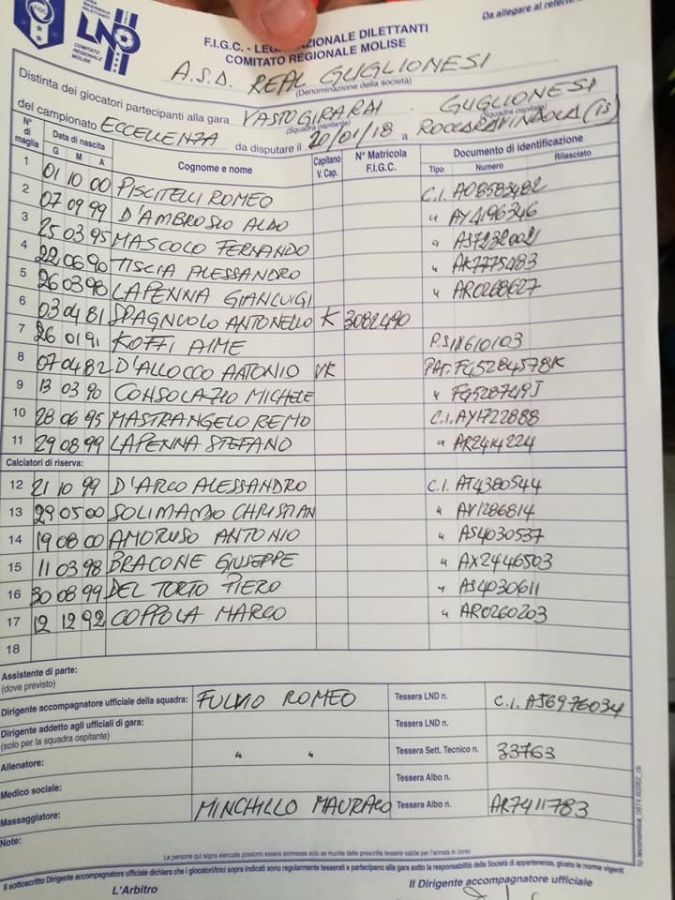 LND
COMITATO
REGIONALE
MOLISE
Da allegare al
F.I.G.C. - NAZIONALE DILETTANTI
COMITATO REGIONALE MOLISE
A.S.D. REAL GUGLIONESI
(Denominazione della società)
Distinta dei giocatori partecipanti alla gara VASTOGIRARDI - GUGLIONESI
(Squadra ospitante) (Squadra ospitata)
del campionato ECCELLENZA da disputare il 20/01/18 a ROCCARAVINDOLA (IS)
N° di maglia Data di nascita G M A Cognome e nome Capitano V. Cap. N° Matricola F.I.G.C. Documento di identificazione Tipo Numero Rilasciato
1 01 10 00 PISCITELLI ROMEO C.I. AO8583482
2 07 09 99 D'AMBROSIO ALDO " AY4196346
3 25 03 95 MASCOLO FERNANDO "
4 22 06 90 TISCIA ALESSANDRO " AK7775483
5 26 03 98 LAPENNA GIANLUIGI " AR0268627
6 03 04 81 SPAGNUOLO ANTONELLO K 3082490
7 26 01 91 KOFFI AIME
8 07 04 82 D'ALLOCCO ANTONIO VK PAT. FG5284578K
9 13 03 90 CONSOLAZIO MICHELE " FG528749J
10 28 06 95 MASTRANGELO REMO C.I. AY1722888
11 29 08 99 LAPENNA STEFANO " AR2414224
Calciatori di riserva:
12 21 10 99 D'ARCO ALESSANDRO C.I. AT4380544
13 29 05 00 SOLIMANDO CHRISTIAN " AY1286814
14 19 08 00 AMORUSO ANTONIO " AS4030537
15 11 03 98 BRACONE GIUSEPPE " AX2446503
16 30 08 99 DEL TORTO PIERO " AS4030611
17 12 12 92 COPPOLA MARCO " AR0260203
18
Assistente di parte:
(dove previsto)
Dirigente accompagnatore ufficiale della squadra: FULVIO ROMEO Tessera LND n. C.I. AS6976034
Dirigente addetto agli ufficiali di gara: Tessera LND n.
(solo per la squadra ospitante)
Allenatore: " " Tessera Sett. Tecnico n. 33763
Medico sociale: Tessera Albo n.
Massaggiatore: MINCHILLO MAURACO Tessera Albo n. AR7411783
Note:
Le persone qui sopra elencate possono essere ammesse solo se munite delle prescritte tessere valide per l'annata in corso
Il sottoscritto Dirigente accompagnatore ufficiale dichiara che i giocatori sopra indicati sono regolarmente tesserati e partecipano alla gara sotto la responsabilità della Società di appartenenza, giusto le norme vigenti
L'Arbitro Il Dirigente accompagnatore ufficiale